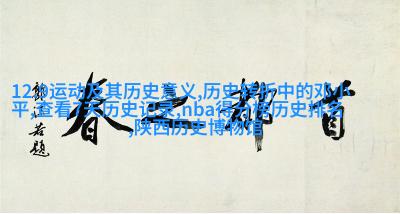 12.9运动及其历史意义,历史转折中的邓小
平,查看天历史记录,nba得分榜历史排名
,陕西历史博物馆
首都之春
郭沫若题